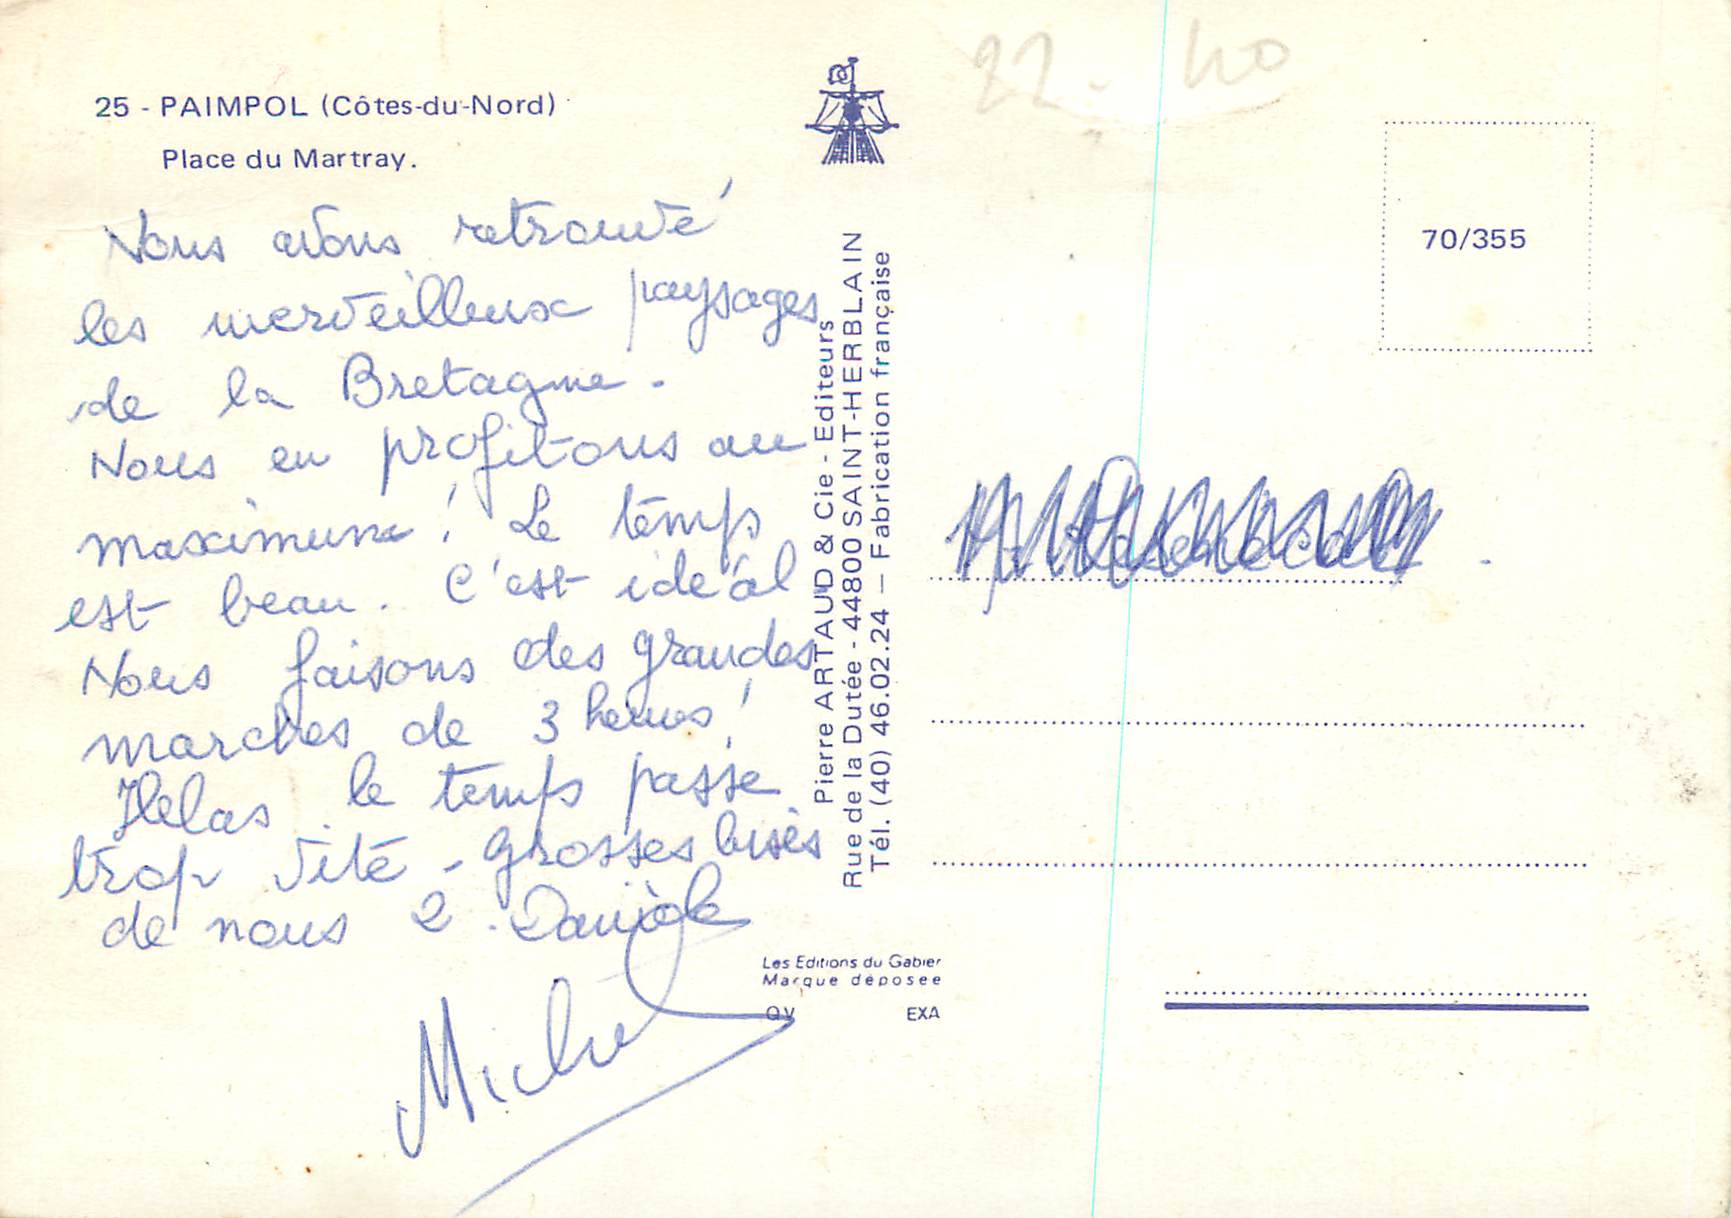 25 - PAIMPOL (Côtes-du-Nord)
Place du Martray.
Nous avons retrouvé
les merveilleux paysages
de la Bretagne.
Nous en profitons au
maximum ! Le temps
est beau. C'est idéal
Nous faisons des grandes
marches de 3 heures !
Helas le temps passe
trop vite - Grosses bises
de nous 2. Danièle
Michel
Pierre ARTAUD & Cie - Editeurs
Rue de la Dutée - 44800 SAINT-HERBLAIN
Tél. (40) 46.02.24 — Fabrication française
Les Editions du Gabier
Marque déposée
QV EXA
22 - 40
70/355